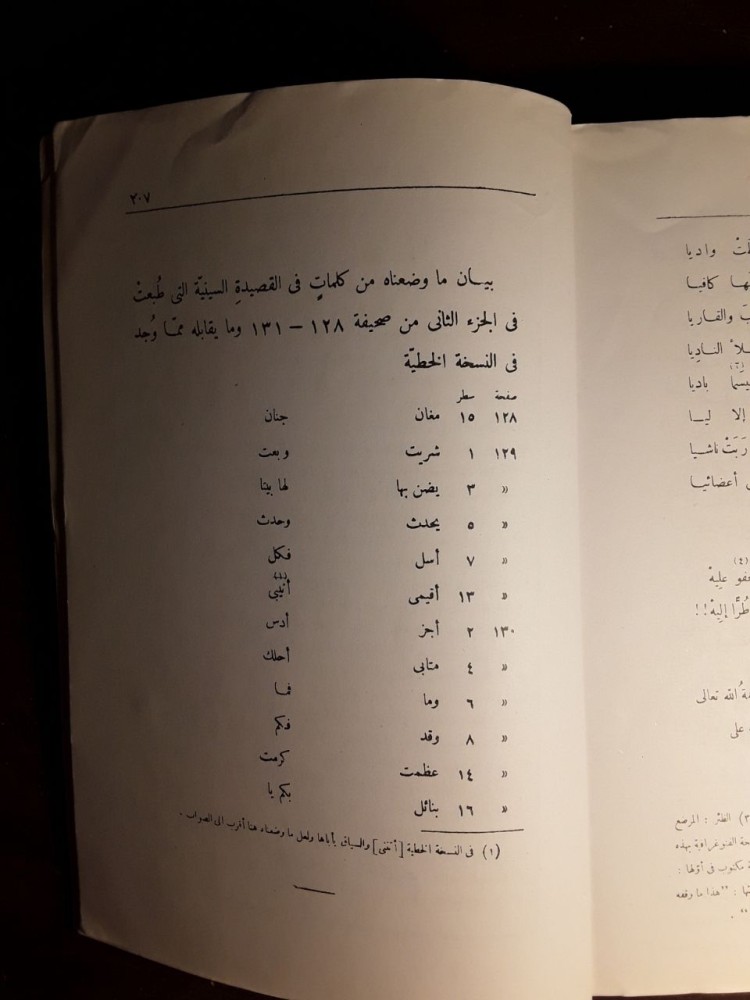 ٢٠٧
بيان ما وضعناه من كلماتٍ فى القصيدةِ السينيّة التى طُبعتْ
فى الجزء الثانى من صحيفة ١٢٨ – ١٣١ وما يقابله ممّا وُجد
فى النسخة الخطيّة
صفحة سطر
١٢٨ ١٥ مغان جنان
١٢٩ ١ شريت وبعت
« ٣ يضن بها لها بينا
« ٥ يحدث وحدث
« ٧ أسل فكل
« ١٣ أقيمى أنيبى (١)
١٣٠ ٢ أجز أدس
« ٤ متابى أحلك
« ٦ وما فما
« ٨ وقد فكم
« ١٤ عظمت كرمت
« ١٦ بنائل بكم يا
(١) فى النسخة الخطية [أتنى] والسياق يأباها ولعل ما وضعناه هنا أقرب الى الصواب .
واديا
كافيا
والقاريا
النادِيا
(٢)
باديا
إلا ليا
رَبَتْ ناشيا
أعضائيا
(٤)
عليهْ
طُرًّا إليهْ!!
الله تعالى
على
الظئر : المرضع
الفنوغرافية بهذه
مكتوب فى أوّلها :
: "هذا ما وقفه
" .